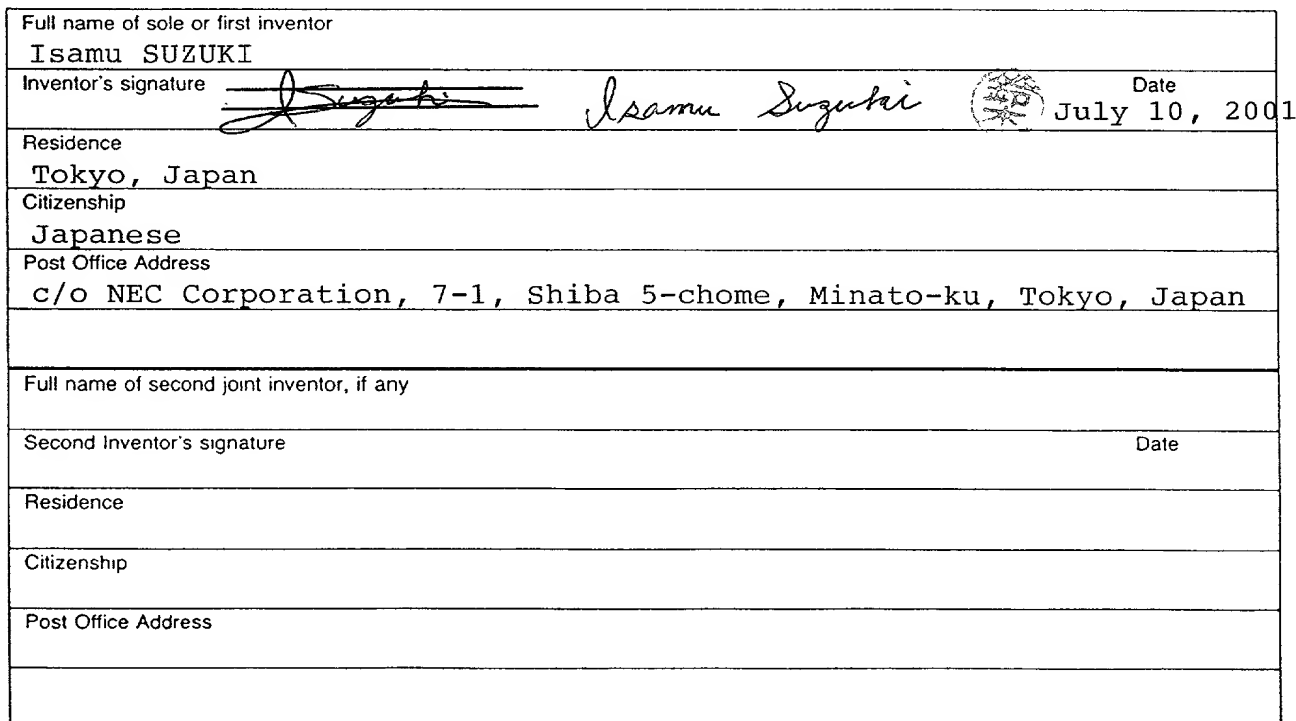 Full name of sole or first inventor
Isamu SUZUKI
Inventor's signature ISuzuki Isamu Suzuki Date
July 10, 2001
Residence
Tokyo, Japan
Citizenship
Japanese
Post Office Address
c/o NEC Corporation, 7-1, Shiba 5-chome, Minato-ku, Tokyo, Japan
Full name of second joint inventor, if any
Second Inventor's signature Date
Residence
Citizenship
Post Office Address